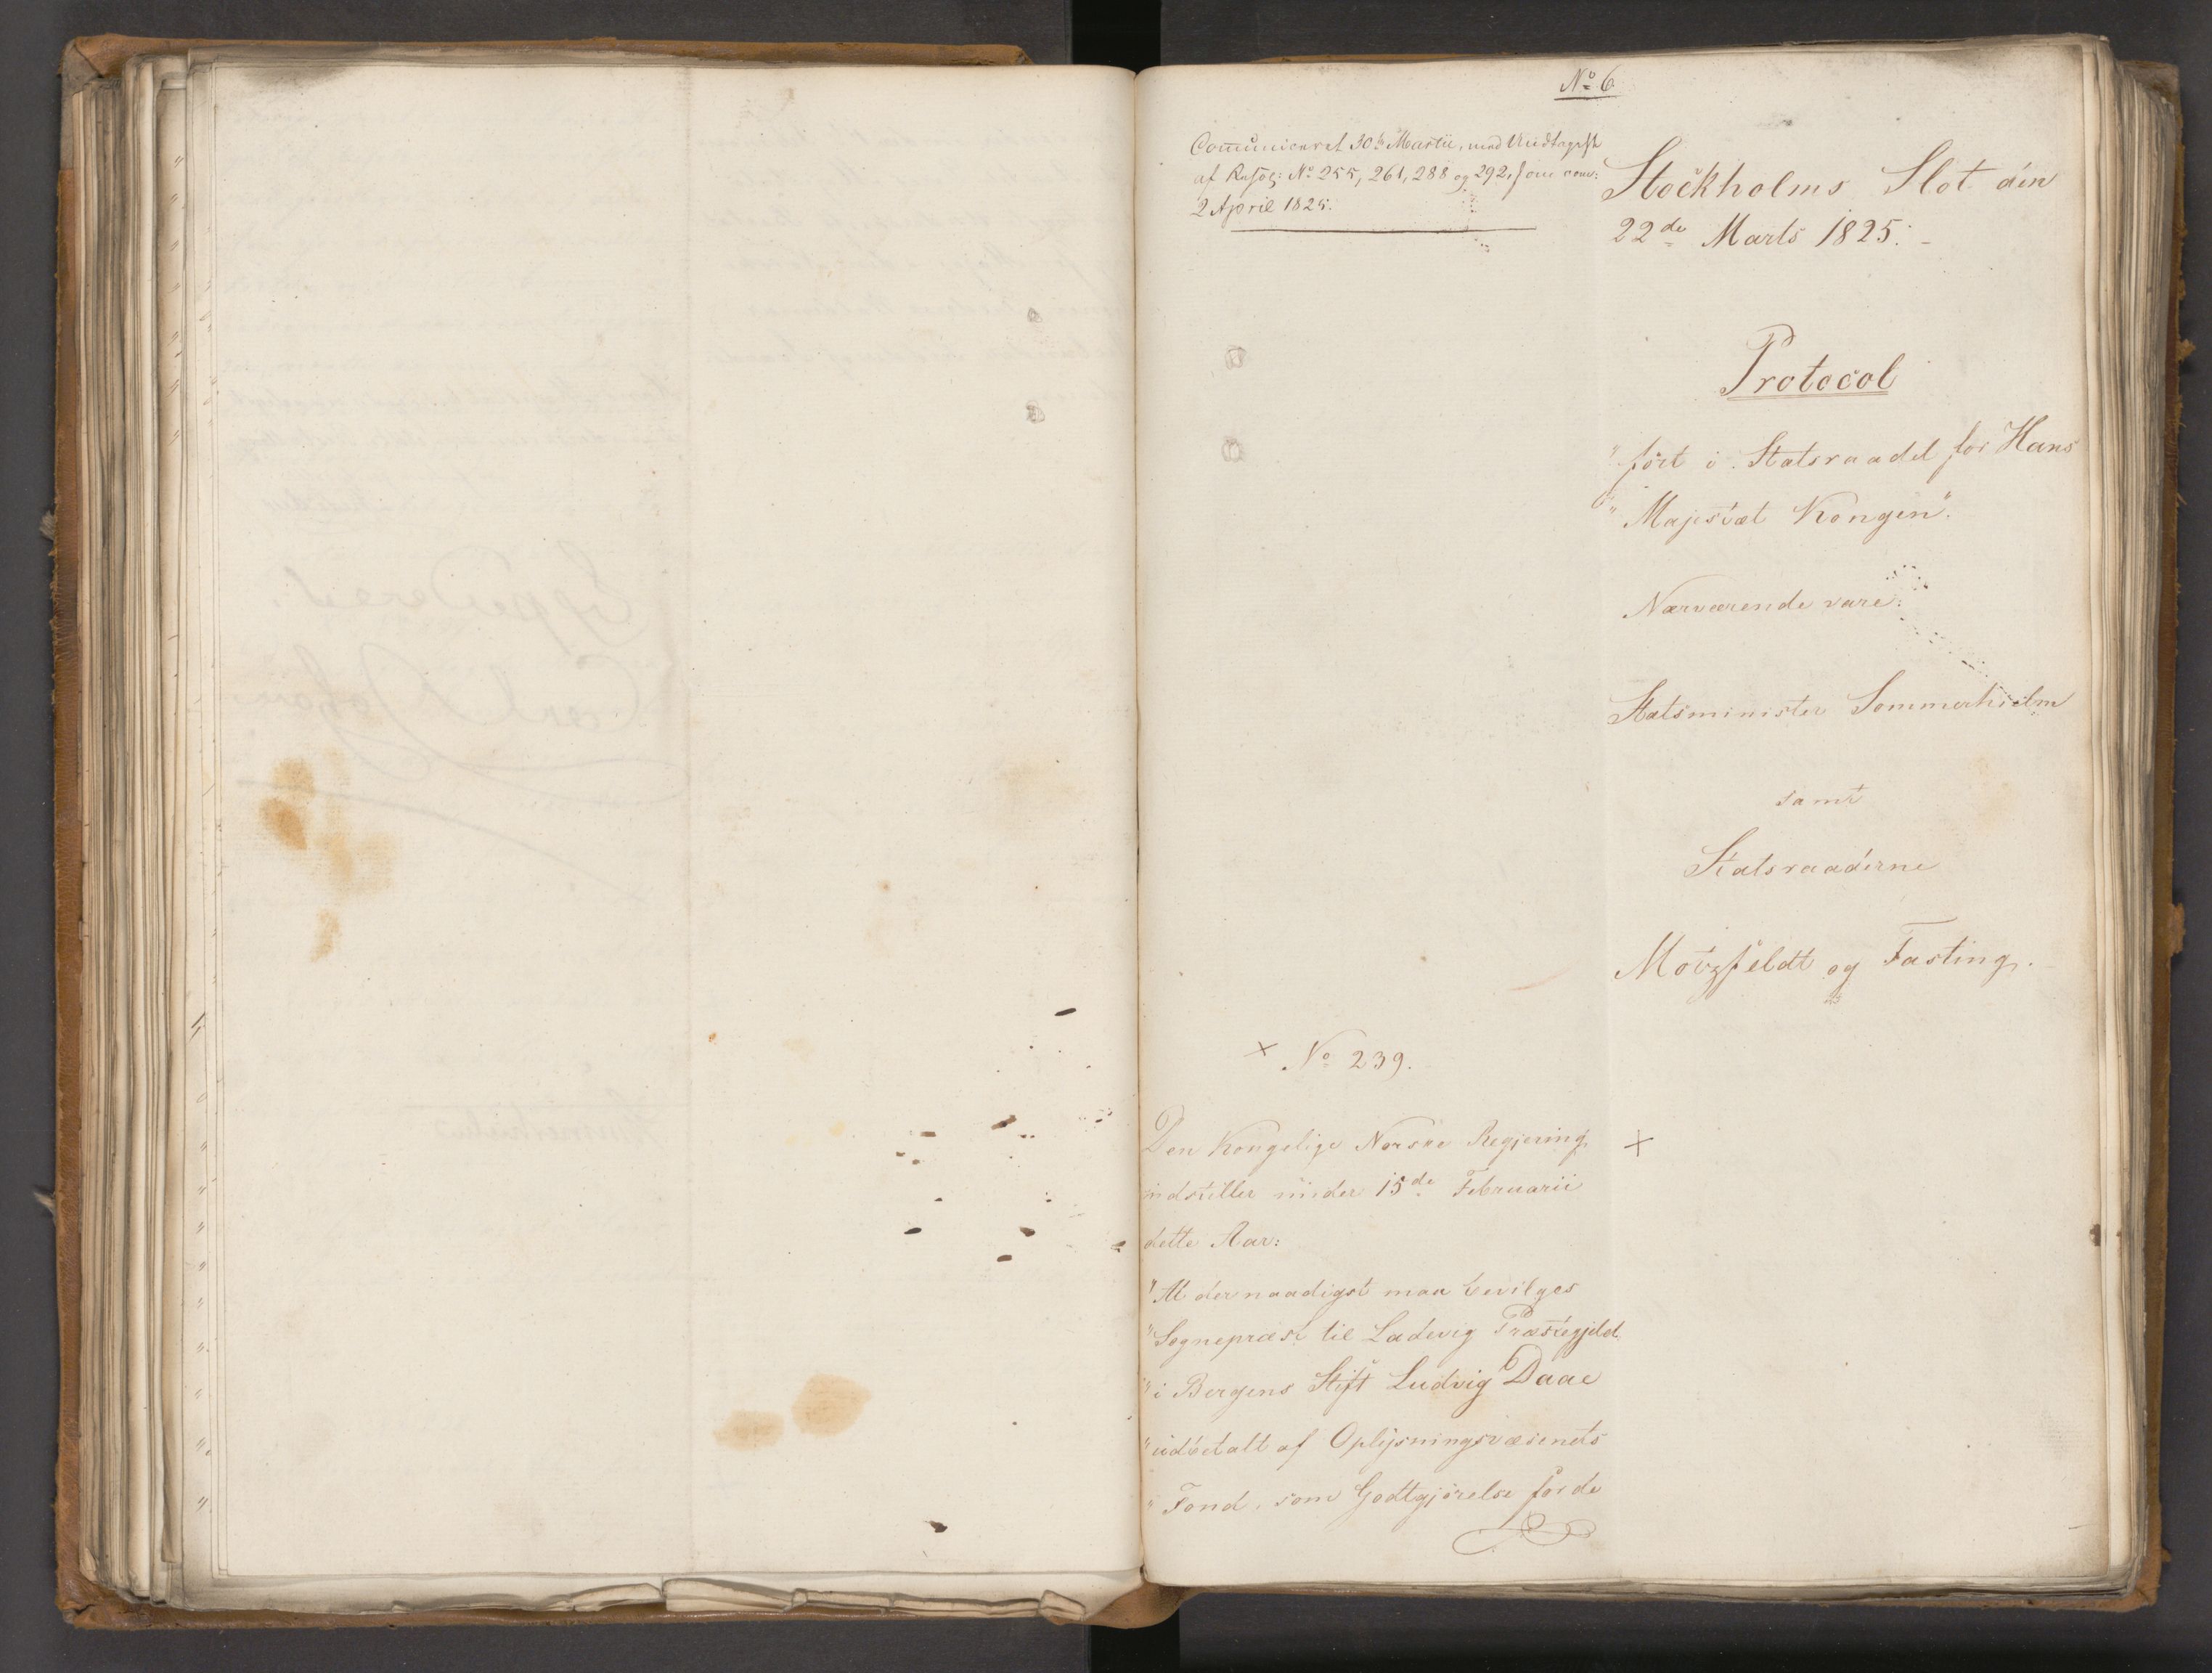 No 6
Communiceret 30te Martii, med Undtagelse
af Resol: No 255, 261, 288 og 292, som com:
2 April 1825.
Stockholms Slot den
22de Marts 1825.
Protocol
"ført i Statsraadet for Hans
"Majestæt Kongen".
Nærværende vare:
Statsminister Sommerhielm
samt
Statsraaderne
Motzfeldt og Fasting.
× No 239.
Den Kongelige Norske Regjering ×
indstiller under 15de Februarii
dette Aar:
"At der naadigst maa bevilges
"Sognepræst til Ladevig Præstegjeld
"i Bergens Stift Ludvig Daae
"udbetalt af Oplysningsvæsenets
"Fond, som Godtgjørelse for de